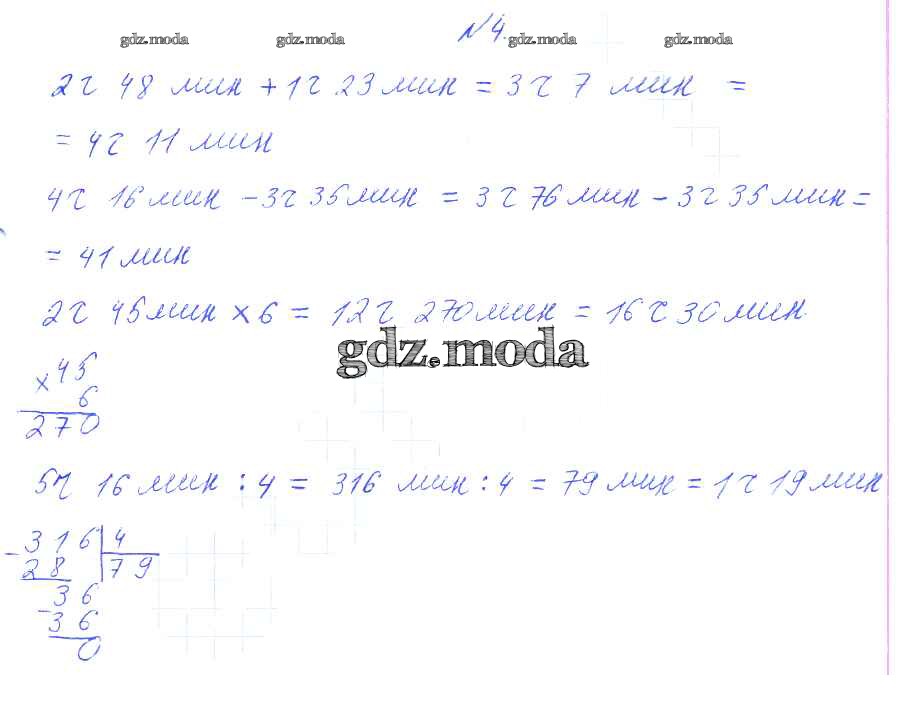 gdz.moda gdz.moda №4. gdz.moda gdz.moda
2ч 48 мин + 1ч 23 мин = 3ч 7 мин =
= 4ч 11 мин
4ч 16 мин - 3ч 35 мин = 3ч 76 мин - 3ч 35 мин =
= 41 мин
2ч 45 мин × 6 = 12ч 270 мин = 16ч 30 мин
gdz.moda
× 45
6
270
5ч 16 мин : 4 = 316 мин : 4 = 79 мин = 1ч 19 мин
- 316 | 4
28 | 79
36
- 36
0